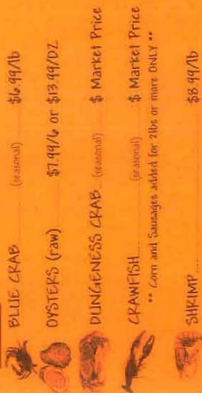 BLUE CRAB (seasonal) $6.99/lb
OYSTERS (raw) $7.99/6 or $13.99/DZ
DUNGENESS CRAB (seasonal) $ Market Price
CRAWFISH (seasonal) $ Market Price
** Corn and Sausages added for 2lbs or more ONLY **
SHRIMP $8.99/lb